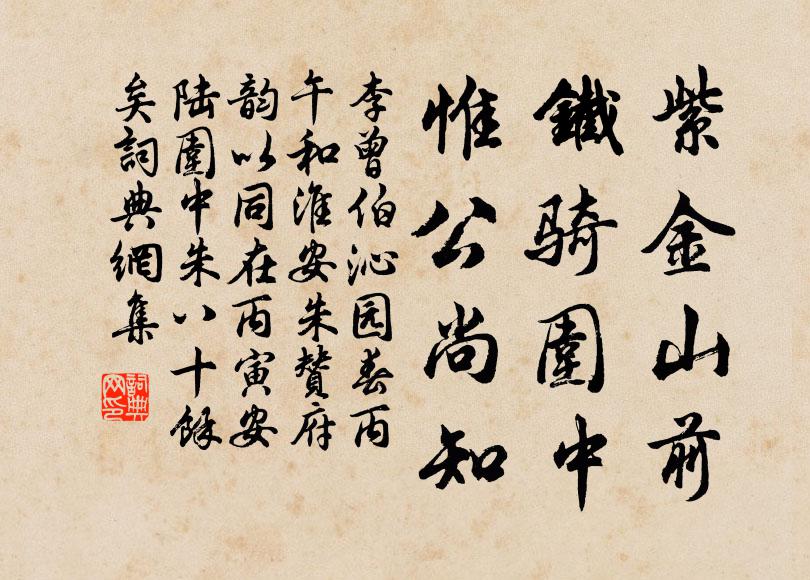 紫金山前
鐵騎圍中
惟公尚知
李曾伯沁园春丙
午和淮安朱贊府
韵以同在丙寅安
陆圍中朱八十餘
矣詞典網集
詞典网印